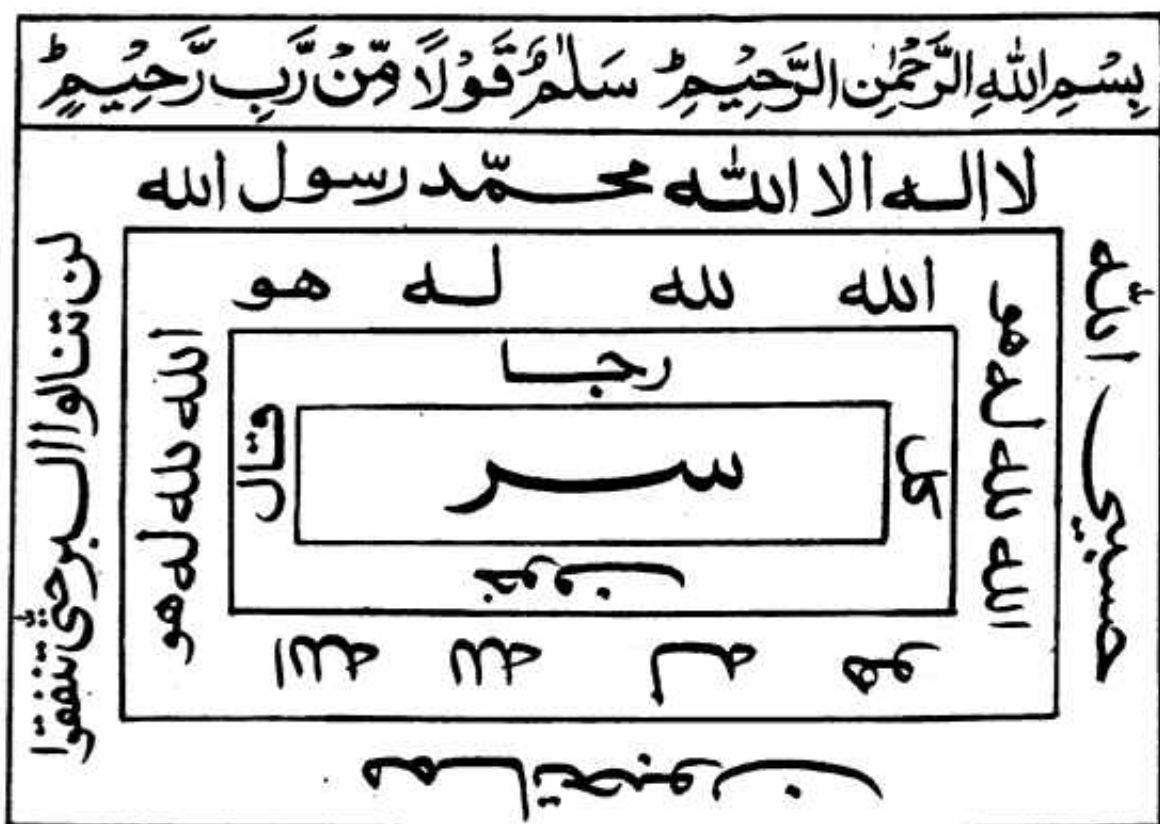 بِسْمِ اللّٰهِ الرَّحْمٰنِ الرَّحِيْمِ ؕ سَلٰمٌ قَوْلًا مِّنْ رَّبٍ رَّحِيْمٍ ؕ
لا اله الا اللّٰه محمّد رسول الله
حسبی اللّٰه
لن تنالوا البر حتیٰ تنفقوا
مما تحبون
الله لله له هو
الله لله له هو
الله لله له هو
الله لله له هو
رجا
كل
قتال
سر